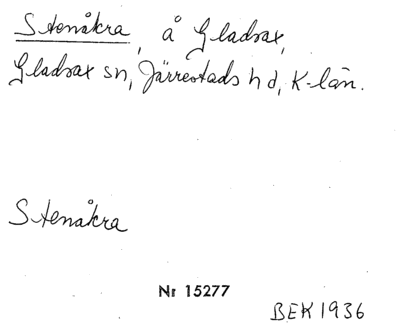 Stenåkra, å Gladsax,
Gladsax sn, Järrestads hd, K-län.
Stenåkra
Nr 15277
BEK 1936